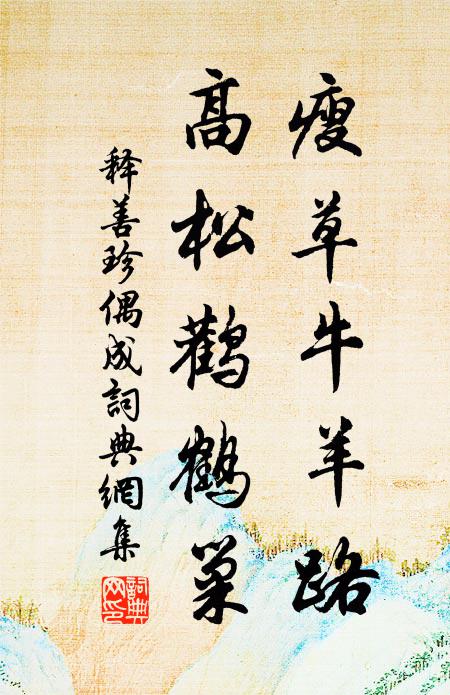 瘦草牛羊路
高松鹳鹤巢
释善珍偶成詞典網集
詞典網印